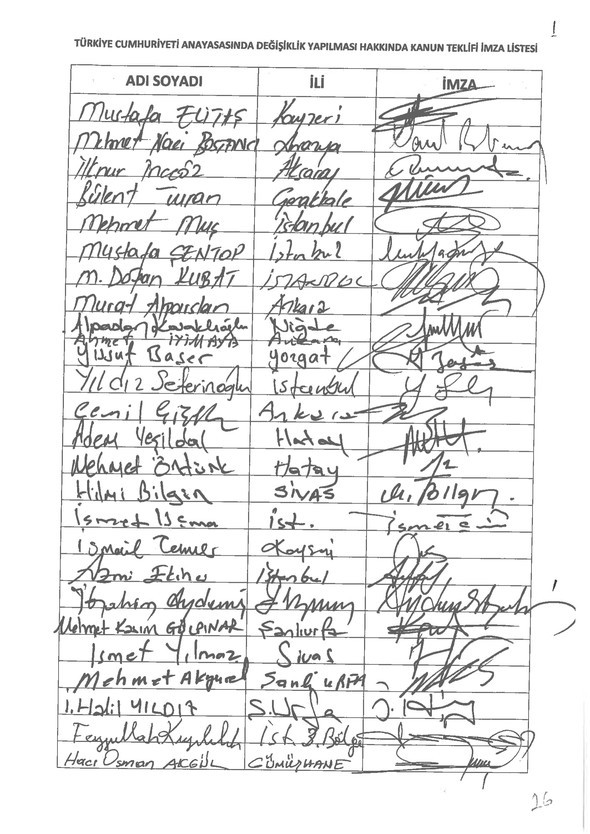 1
TÜRKİYE CUMHURİYETİ ANAYASASINDA DEĞİŞİKLİK YAPILMASI HAKKINDA KANUN TEKLİFİ İMZA LİSTESİ
ADI SOYADI İLİ İMZA
Mustafa ELİTAŞ Kayseri
Mehmet Naci BOSTANCI Amasya
İlknur İnceöz Aksaray
Bülent Turan Çanakkale
Mehmet Muş İstanbul
Mustafa ŞENTOP İstanbul
M. Doğan KUBAT İSTANBUL
Murat Alparslan Ankara
Alpaslan Kavaklıoğlu Niğde
Ahmet İYİMAYA Ankara
Yusuf Başer Yozgat
Yıldız Seferinoğlu İstanbul
Cemil Çiçek Ankara
Adem Yeşildal Hatay
Mehmet Öntürk Hatay
Hilmi Bilgin SİVAS H. Bilgin.
İsmet Uçma İst.
İsmail Tamer Kayseri
Azmi Ekinci İstanbul
İbrahim Aydemir Erzurum
Mehmet Kasım GÜLPINAR Şanlıurfa
İsmet Yılmaz Sivas
Mehmet Akyürek Şanlı URFA
İ. Halil YILDIZ Ş. Urfa
Feyzullah Kıyıklık İst. 3. Bölge
Hacı Osman AKGÜL GÜMÜŞHANE
26